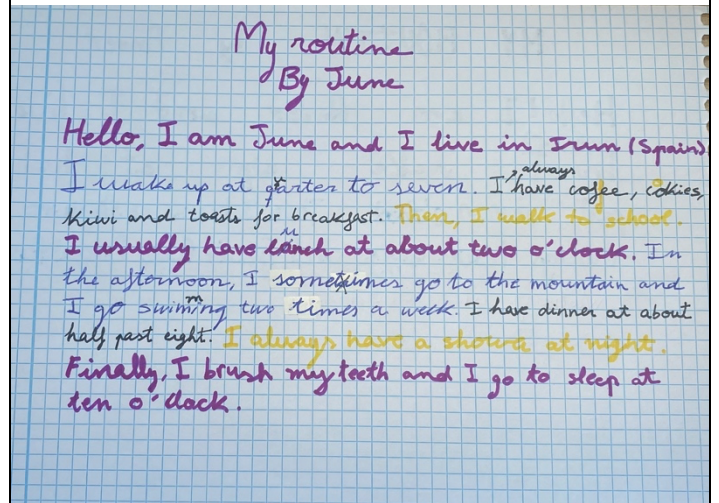 My routine
By June
Hello, I am June and I live in Irun (Spain)
I wake up at quarter to seven. I always have cofee, cokies,
kiwi and toasts for breakfast. Then, I walk to school.
I usually have lunch at about two o'clock. In
the afternoon, I sometimes go to the mountain and
I go swimming two times a week. I have dinner at about
half past eight. I always have a shower at night.
Finally, I brush my teeth and I go to sleep at
ten o'clock.